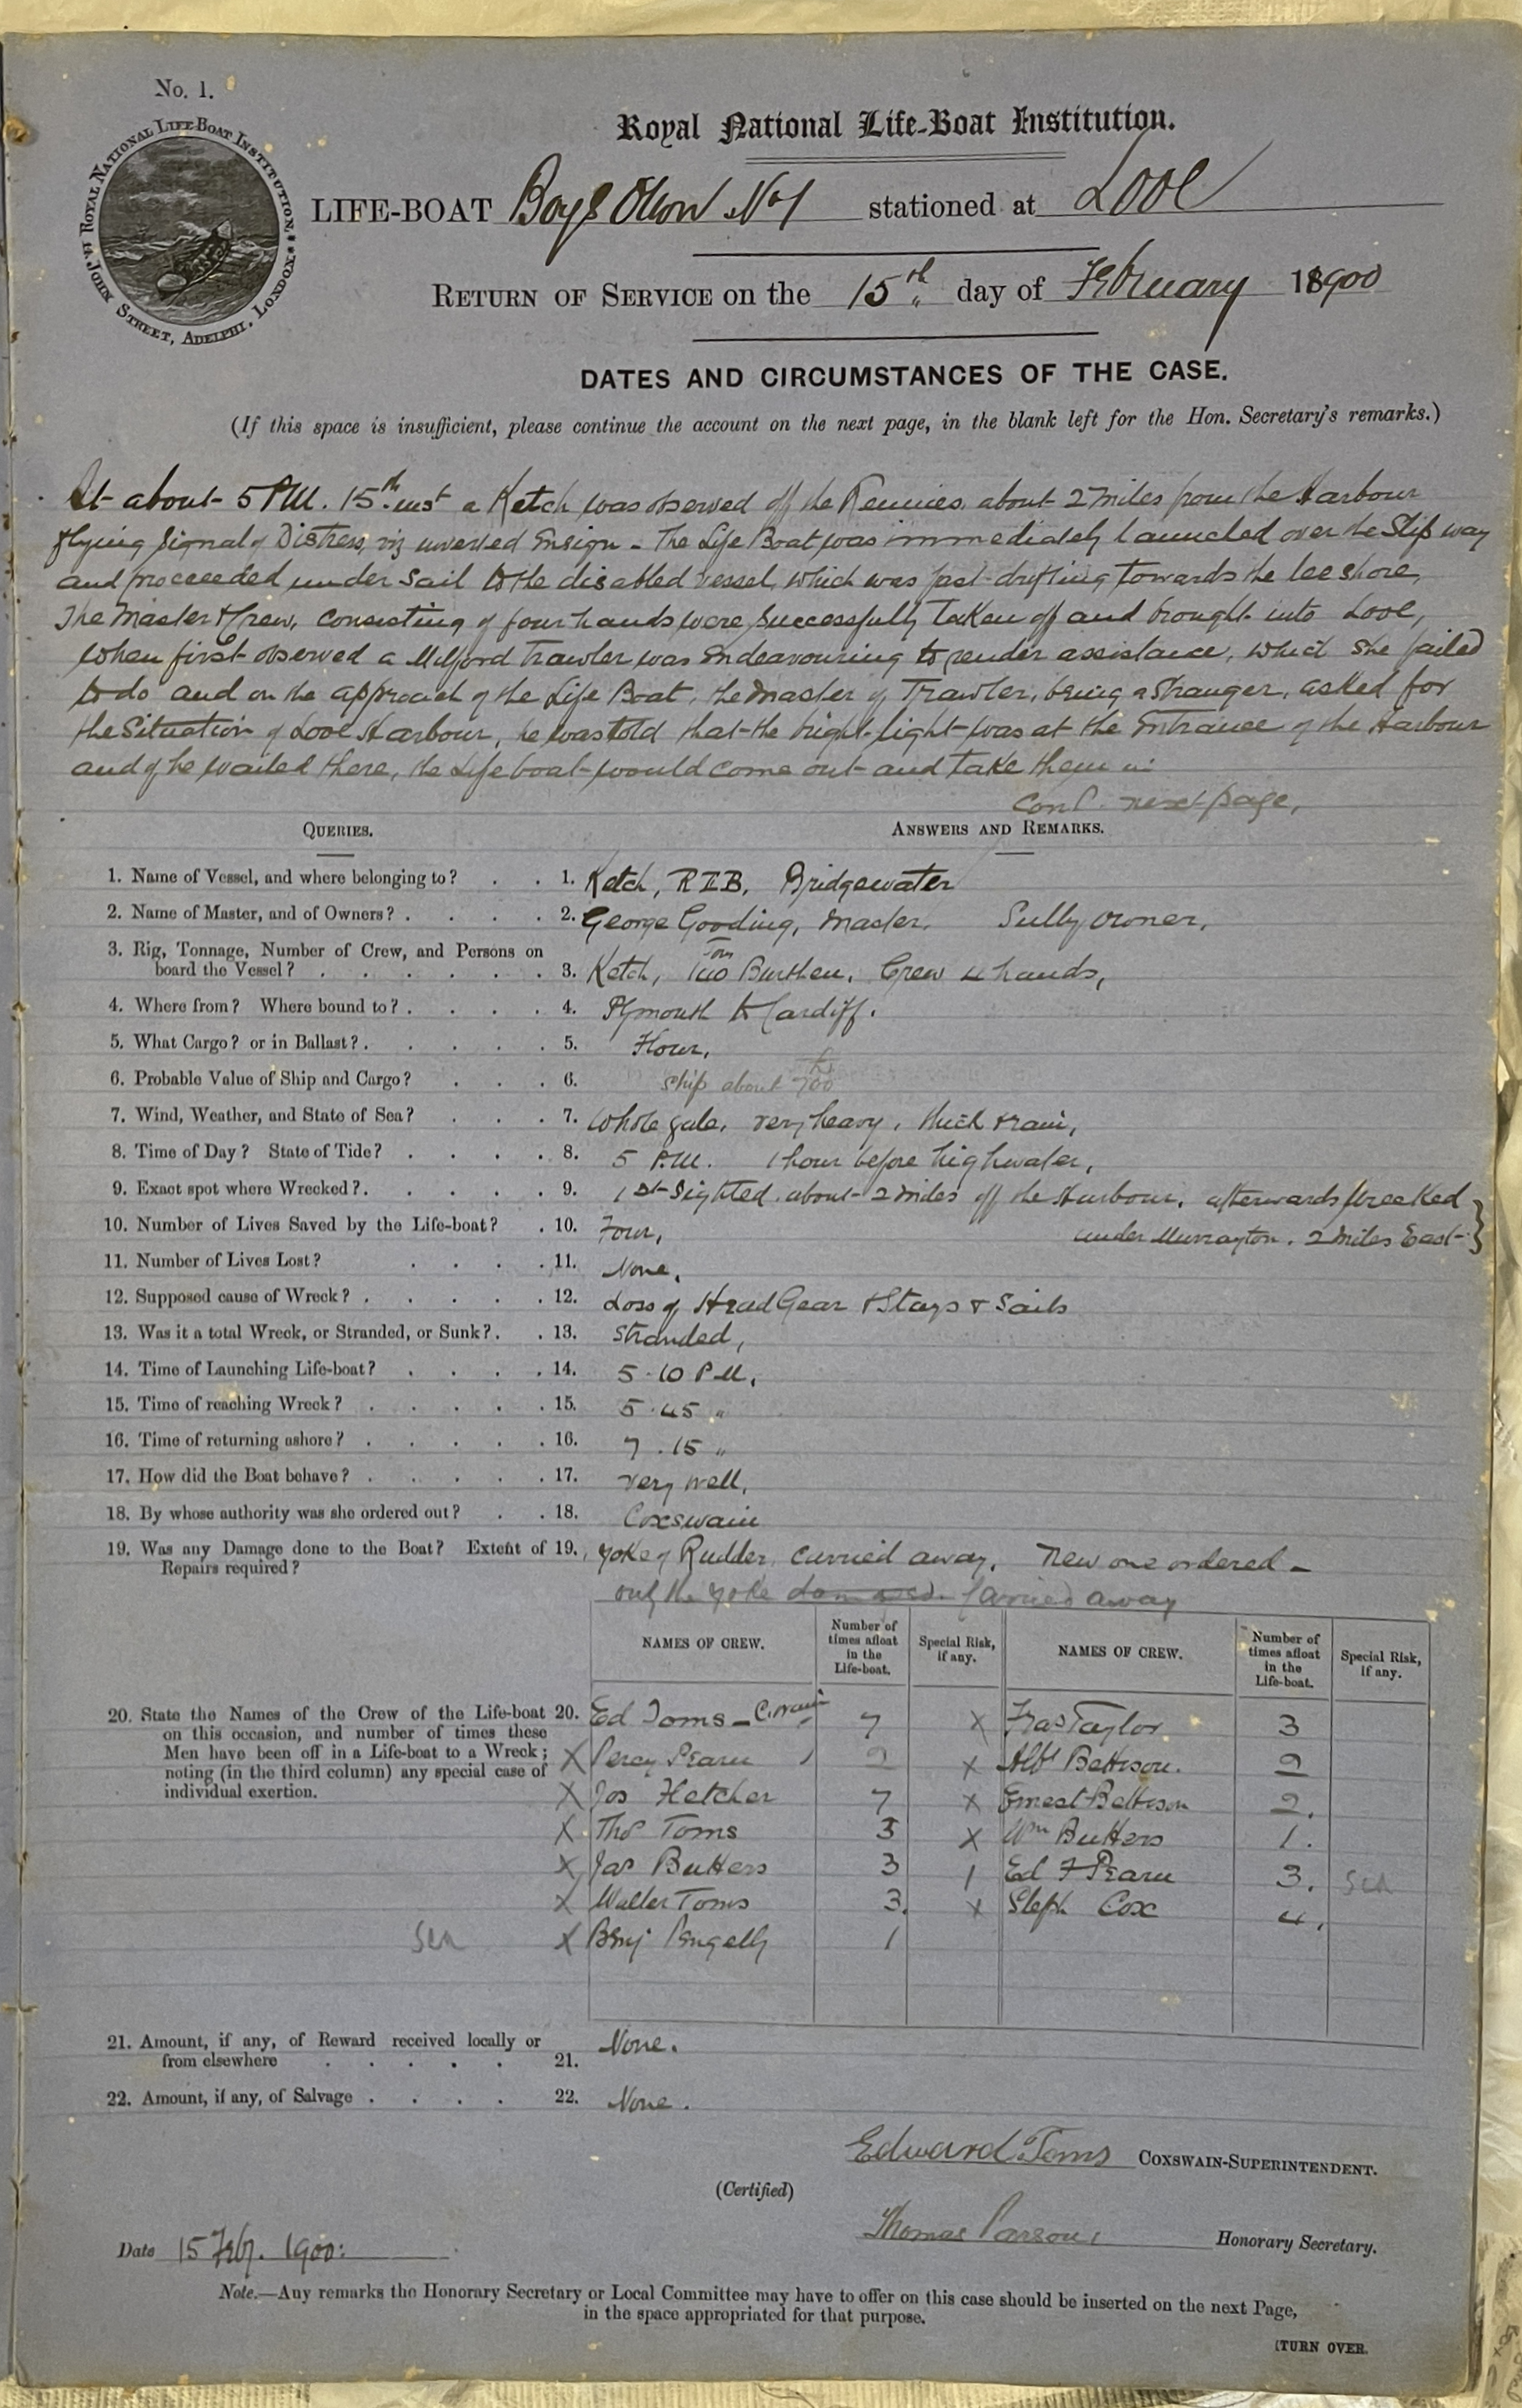 No. 1.
ROYAL NATIONAL LIFE-BOAT INSTITUTION. JOHN STREET, ADELPHI, LONDON.
Royal National Life-Boat Institution.
LIFE-BOAT Boys Own No 1 stationed at Looe
RETURN OF SERVICE on the 15th day of February 18900
DATES AND CIRCUMSTANCES OF THE CASE.
(If this space is insufficient, please continue the account on the next page, in the blank left for the Hon. Secretary's remarks.)
At about 5 P.M. 15th inst a Ketch was observed off the Rennies about 2 miles from the Harbour
flying Signal of Distress, viz inverted Ensign - The Life Boat was immediately launched over the Slip way
and proceeded under sail to the disabled vessel, which was fast drifting towards the lee shore,
The Master & Crew, consisting of four hands were successfully taken off and brought into Looe,
when first observed a Milford Trawler was endeavouring to render assistance, which she failed
to do and on the approach of the Life Boat, the master of Trawler, being a stranger, asked for
the Situation of Looe Harbour, he was told that the bright light was at the Entrance of the Harbour
and if he waited there, the Life boat would come out and take them in
cont. next page,
QUERIES. ANSWERS AND REMARKS.
1. Name of Vessel, and where belonging to? . . 1. Ketch, R.I.B. Bridgewater
2. Name of Master, and of Owners? . . . . 2. George Gooding, Master. Sully owner,
3. Rig, Tonnage, Number of Crew, and Persons on
board the Vessel? . . . . . . . 3. Ketch, Ton Burthen, Crew 4 hands,
4. Where from? Where bound to? . . . . 4. Plymouth to Cardiff.
5. What Cargo? or in Ballast? . . . . . 5. Flour,
6. Probable Value of Ship and Cargo? . . . 6. Ship about 700
7. Wind, Weather, and State of Sea? . . . 7. Whole gale, very heavy, thick & rain,
8. Time of Day? State of Tide? . . . . 8. 5 P.M. 1 hour before high water,
9. Exact spot where Wrecked? . . . . . 9. 1st Sighted about 2 miles off the Harbour, afterwards wrecked
under Murrayton. 2 miles East
10. Number of Lives Saved by the Life-boat? . 10. Four,
11. Number of Lives Lost? . . . . 11. None.
12. Supposed cause of Wreck? . . . . . 12. Loss of Head Gear & Stays & Sails
13. Was it a total Wreck, or Stranded, or Sunk? . . 13. Stranded,
14. Time of Launching Life-boat? . . . . 14. 5.10 P.M,
15. Time of reaching Wreck? . . . . . 15. 5.45 "
16. Time of returning ashore? . . . . . 16. 7.15 "
17. How did the Boat behave? . . . . . 17. very well,
18. By whose authority was she ordered out? . . 18. Coxswain
19. Was any Damage done to the Boat? Extent of 19. yoke of Rudder carried away, new one ordered -
Repairs required?
only the yoke damaged carried away
NAMES OF CREW. Number of times afloat in the Life-boat. Special Risk, if any. NAMES OF CREW. Number of times afloat in the Life-boat. Special Risk, if any.
20. State the Names of the Crew of the Life-boat 20.
on this occasion, and number of times these
Men have been off in a Life-boat to a Wreck;
noting (in the third column) any special case of
individual exertion.
Ed Toms - C.swain 7 X Fras Taylor 3
X Percy Pearn 2 X Albt Bettison. 2
X Jos Fletcher 7 X Ernest Bettison 2.
X Thos Toms 3 X Wm Butters 1.
X Jas Butters 3 / Ed F Pearn 3. Sea
X Walter Toms 3. X Steph Cox 4.
Sea X Benj Pengelly 1
21. Amount, if any, of Reward received locally or
from elsewhere . . . . . 21. None.
22. Amount, if any, of Salvage . . . . 22. None.
Edward Toms COXSWAIN-SUPERINTENDENT.
(Certified)
Thomas Parsons Honorary Secretary.
Date 15 Feby. 1900:
Note.—Any remarks the Honorary Secretary or Local Committee may have to offer on this case should be inserted on the next Page,
in the space appropriated for that purpose.
[TURN OVER.